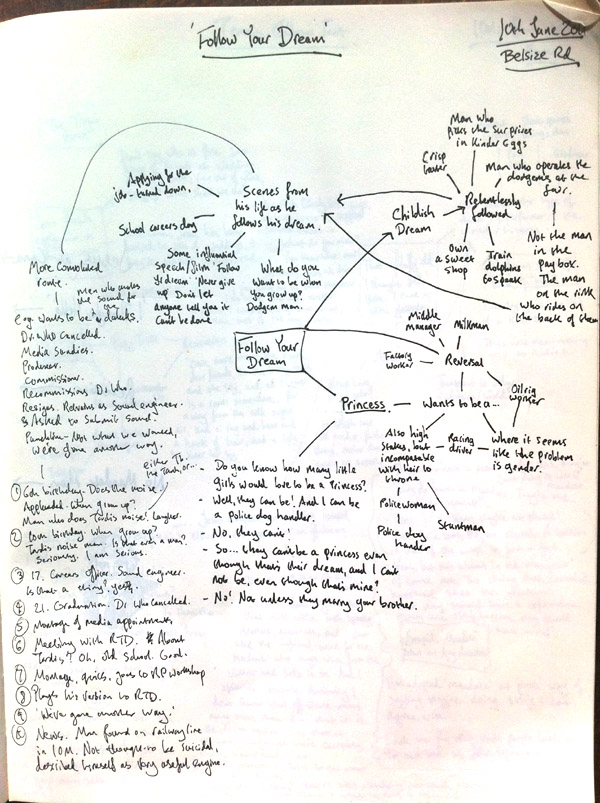 'Follow Your Dream'
10th June
Belsize Rd
Man who
puts the surprises
in Kinder Eggs
Crisp
taster
Man who operates the
dodgems at the
fair.
Relentlessly
followed
Childish
Dream
Own
a sweet
shop
Train
dolphins
to speak
Not the man
in the
pay box.
The man
on the rink
who rides on
the back of them
Applying for the
job - turned down.
School careers day
Scenes from
his life as he
follows his dream.
Some influential
speech/film 'Follow
yr dream' Never give
up Don't let
anyone tell you it
can't be done
What do you
want to be when
you grow up?
Dodgem man.
More convoluted
route.
man who makes
the sound for
daleks
e.g. wants to be
Dr. Who Cancelled.
Media Studies.
Producer.
Commissioner.
Recommissions Dr Who.
Resigns. Retrains as sound engineer.
Asked to submit sound.
Punchline - Not what we wanted,
we've gone another way.
either This
the Tardis, or...
Follow Your
Dream
Princess
Wants to be a...
Reversal
Middle
manager
Milkman
Factory
worker
Oil rig
worker
Also high
stakes, but
incompatible
with heir to
throne
Racing
driver
Where it seems
like the problem
is gender.
Policewoman
Police dog
handler
Stuntman
- Do you know how many little
girls would love to be a Princess?
- Well, they can be! And I can be
a police dog handler.
- No, they can't!
- So... they can't be a princess even
though that's their dream, and I can't
not be, even though that's mine?
- No! Not unless they marry your brother.
① 6th birthday. Does the noise.
Applauded. When grow up?
Man who does Tardis noise! Laughter.
② 10th birthday. When grow up?
Tardis noise man. Is that even a man?
Seriously. I am serious.
③ 17. Careers officer. Sound engineer.
Is that a thing? yes.
④ 21. Graduation. Dr Who Cancelled.
⑤ Montage of media appointments
⑥ Meeting with RTD. About
Tardis? Oh, old school. Good.
⑦ Montage, quits, goes to RP workshop
⑧ Plays his version to RTD.
⑨ 'We've gone another way.'
⑩ News. Man found on railway line
in 10M. Not thought to be suicidal,
described himself as very useful engine.